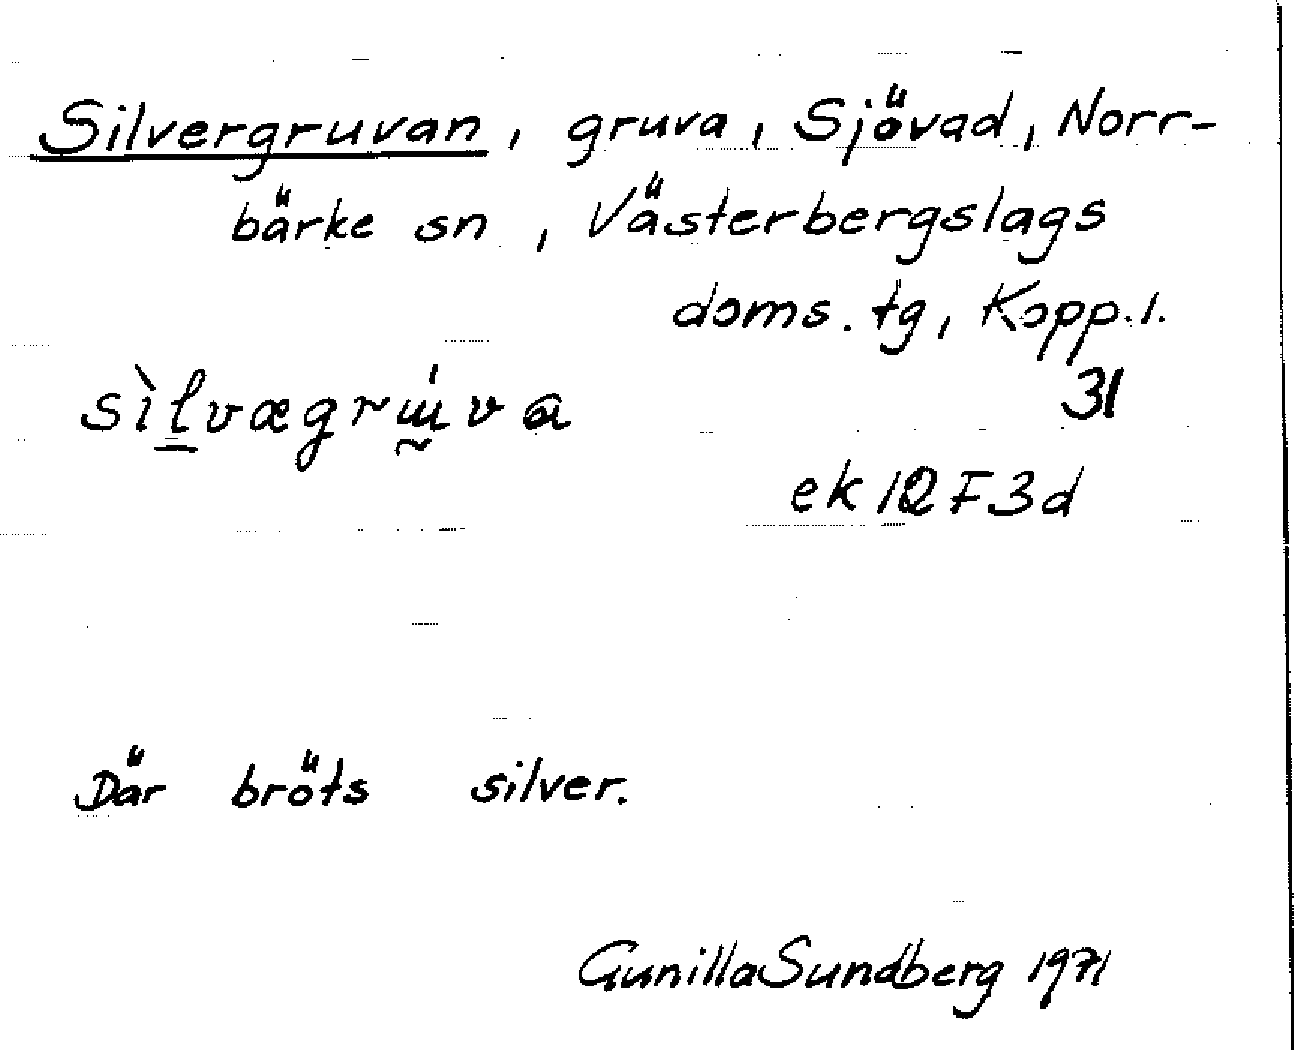 Silvergruvan, gruva, Sjövad, Norr-
bärke sn, Västerbergslags
doms. tg, Kopp. l.
31
ek 12 F 3d
Där bröts silver.
Gunilla Sundberg 1971